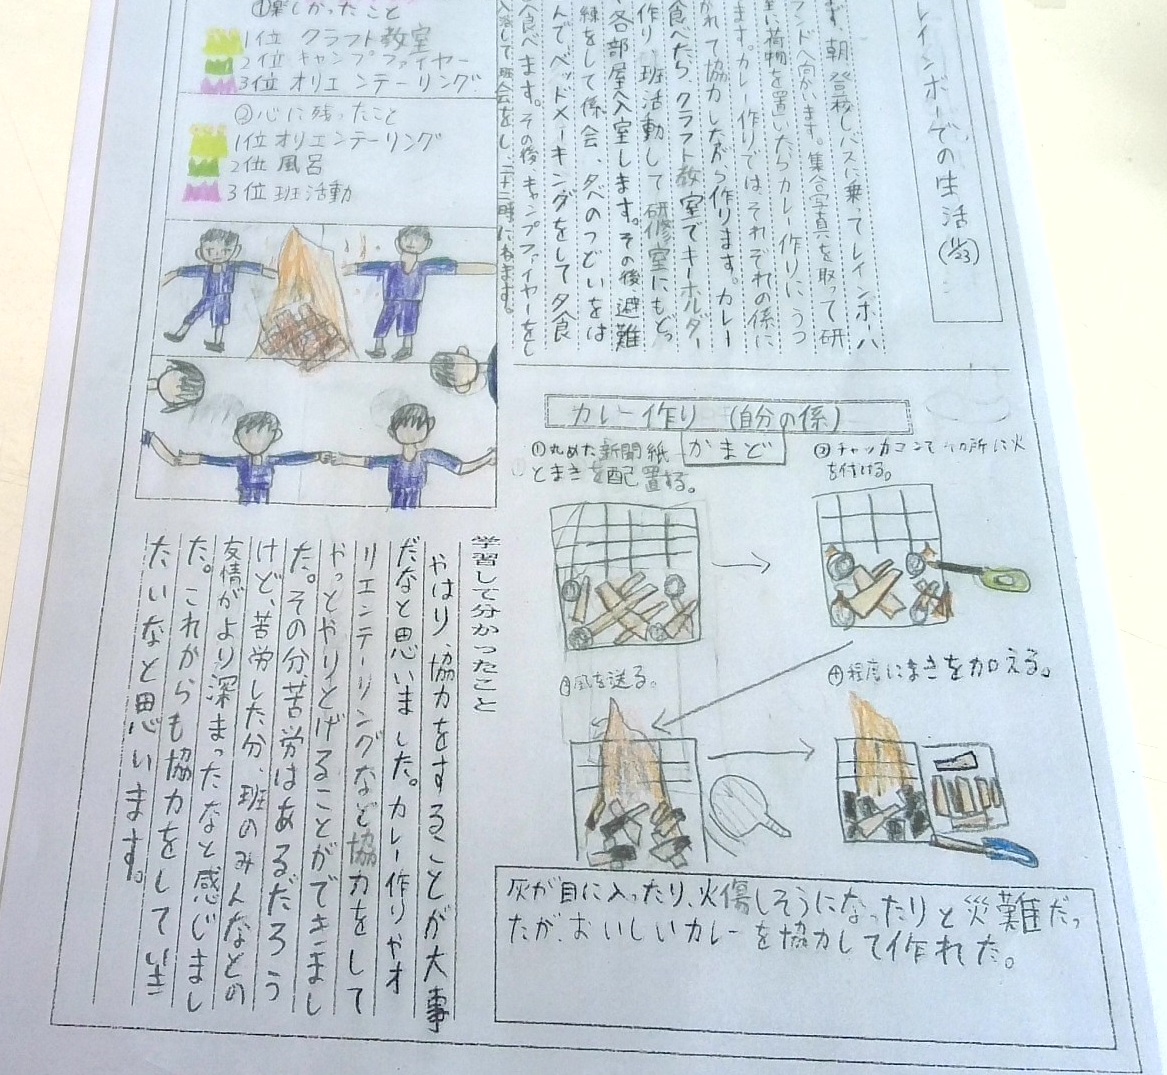 レインボーでの生活(1/23)
まず、朝登校しバスに乗ってレインボーハ
ランドへ向かいます。集合写真を取って研
に荷物を置いたらカレー作りにうつ
ます。カレー作りではそれぞれの係に
かれて協力しながら作ります。カレー
食べたらクラフト教室でキーホルダー
作り、班活動して研修室にもどっ
各部屋へ入室します。その後避難
練をして係会、夕べのつどいをは
んでベッドメーキングをして夕食
食べます。その後、キャンプファイヤーをし
入浴して班会をし、二十二時にねます。
①楽しかったこと
1位 クラフト教室
2位 キャンプファイヤー
3位 オリエンテーリング
②心に残ったこと
1位 オリエンテーリング
2位 風呂
3位 班活動
カレー作り (自分の係)
かまど
①丸めた新聞紙
とまきを配置する。
②チャッカマンで 所に火
を付ける。
③風を送る。
④程度にまきを加える。
灰が目に入ったり、火傷しそうになったりと災難だっ
たが、おいしいカレーを協力して作れた。
学習して分かったこと
やはり、協力をすることが大事
だなと思いました。カレー作りやオ
リエンテーリングなど協力をして
やっとやりとげることができまし
た。その分、苦労はあるだろう
けど、苦労した分、班のみんなとの
友情がより深まったなと感じまし
た。これからも協力をしていき
たいなと思います。